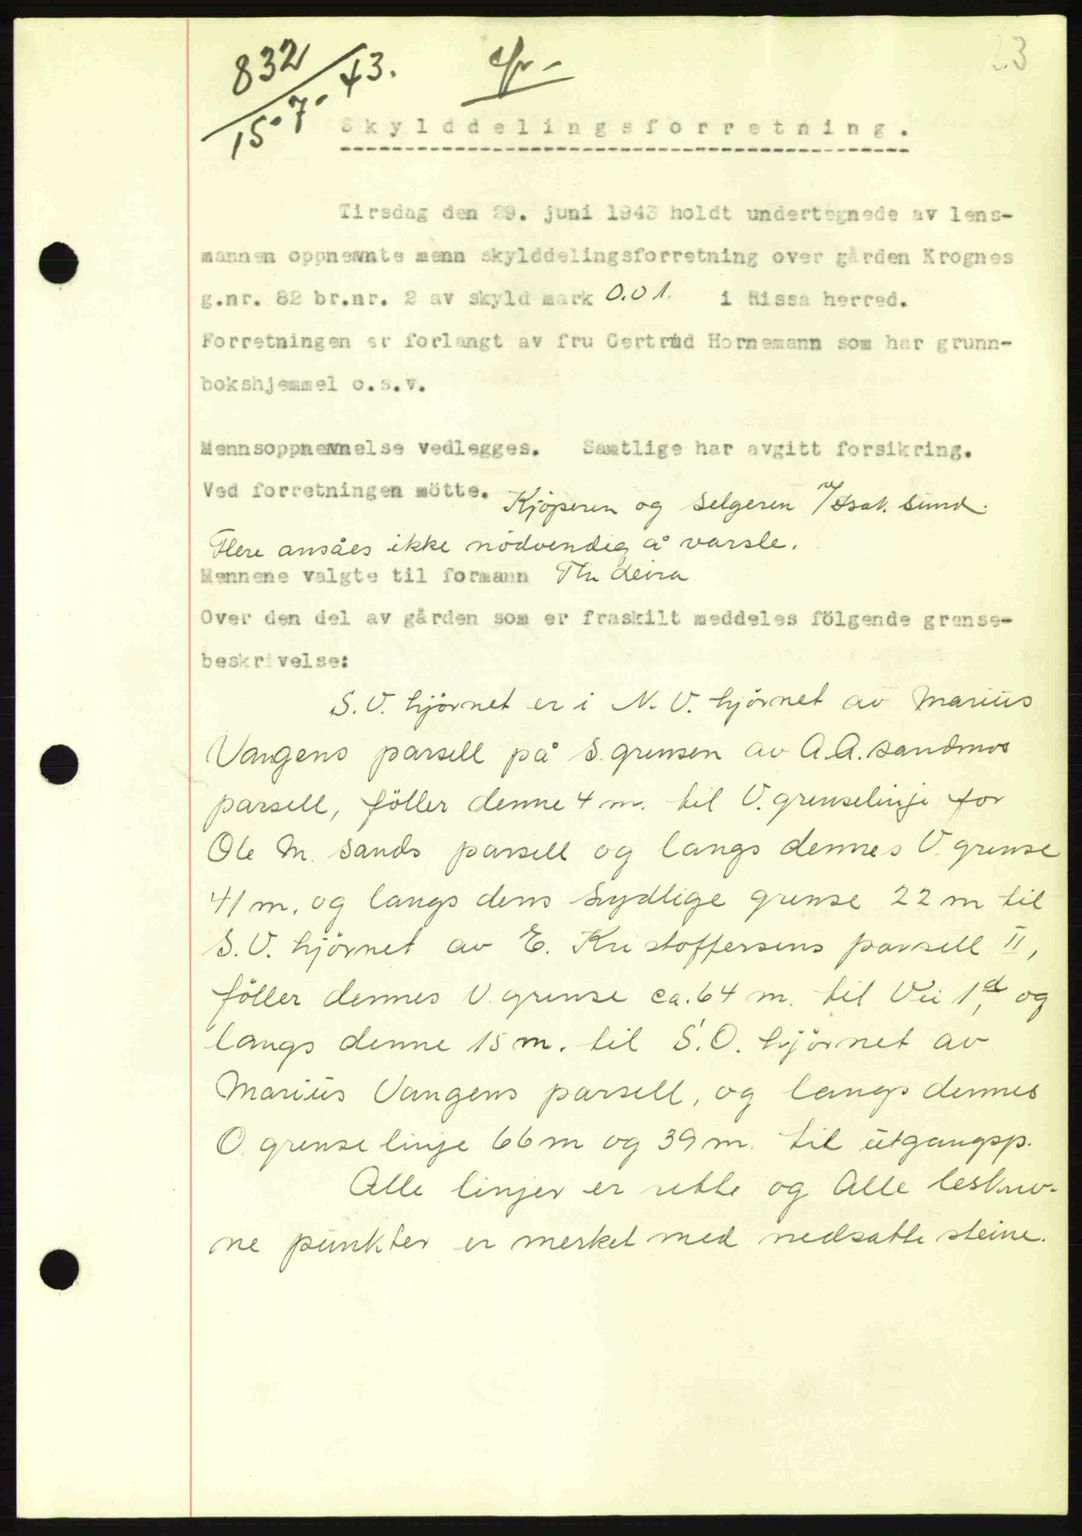 832
15.-7.- 43.
23
Skylddelingsforretning.
Tirsdag den 29. juni 1943 holdt undertegnede av lens-
mannen oppnevnte menn skylddelingsforretning over gården Krognes
g.nr. 82 br.nr. 2 av skyld mark 0.01. i Rissa herred.
Forretningen er forlangt av fru Gertrud Hornemann som har grunn-
bokshjemmel o.s.v.
Mennsoppnevnelse vedlegges. Samtlige har avgitt forsikring.
Ved forretningen mötte. Kjöperen og selgeren v/Isak Sund.
Flere ansåes ikke nödvendig å varsle.
Mennene valgte til formann Th. Leira
Over den del av gården som er fraskilt meddeles fölgende grense-
beskrivelse:
S.V. hjörnet er i N.V. hjörnet av Marius
Vangens parsell på S. grensen av A.A. Sandmos
parsell, föller denne 4 m. til V. grenselinje for
Ole M. Sands parsell og langs dennes V. grense
41 m. og langs dens sydlige grense 22 m til
S.V. hjörnet av E. Kristoffersens parsell II,
föller dennes V. grense ca. 64 m. til Vei 1d, og
langs denne 15 m. til S.O. hjörnet av
Marius Vangens parsell, og langs dennes
O. grenselinje 66 m og 39 m. til utgangsp.
Alle linjer er rette og Alle beskrev-
ne punkter er merket med nedsatte steine.